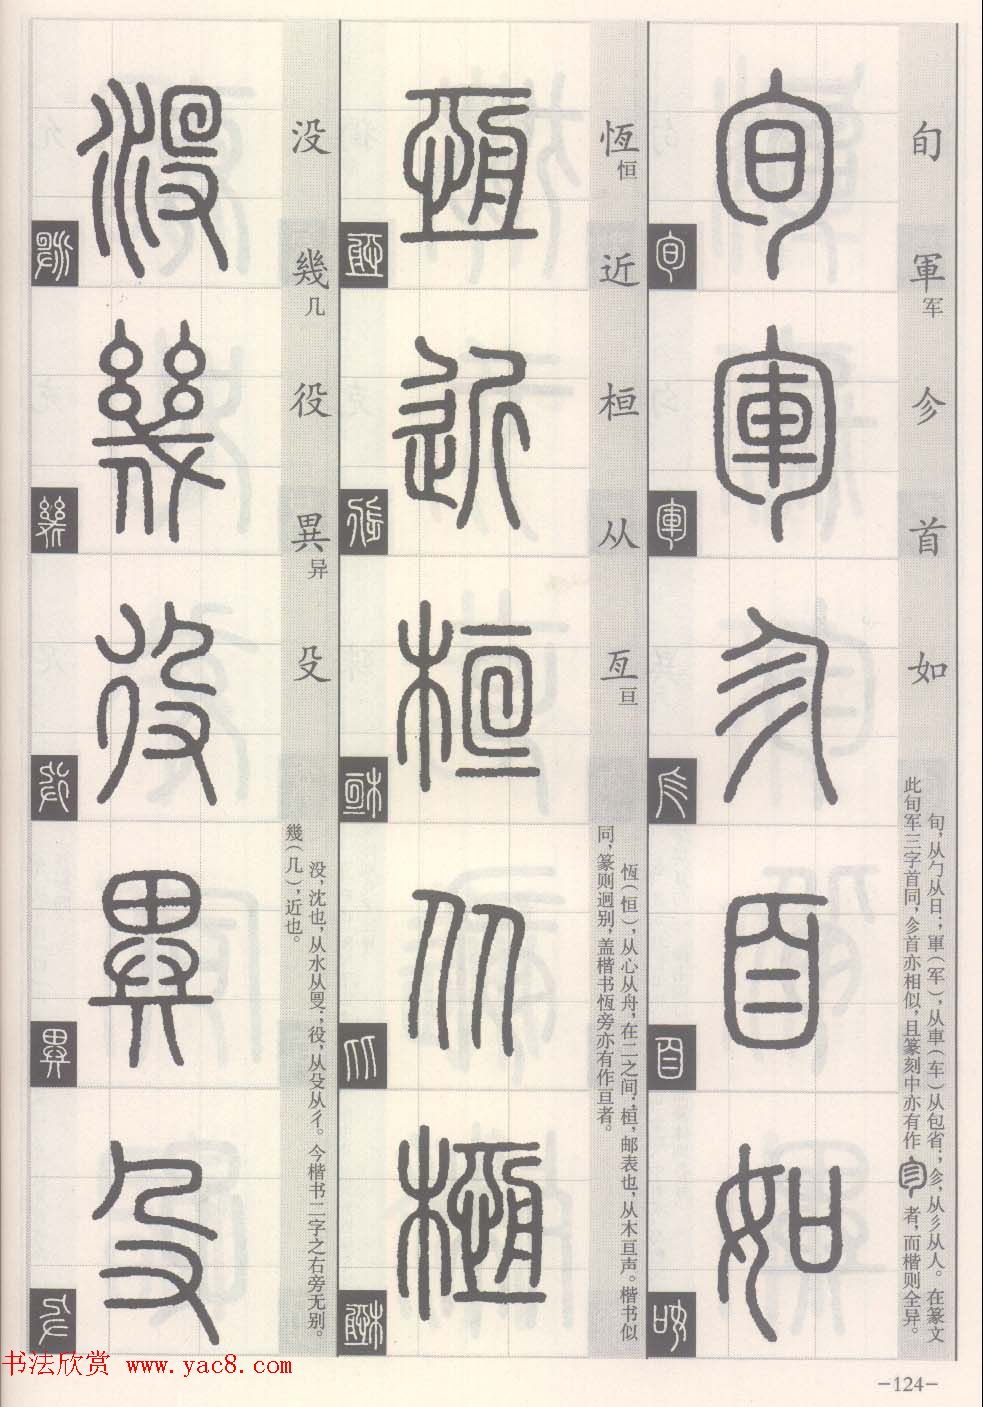 旬 軍军 㐱 首 如
旬，从勹从日；軍（军），从車（车）从包省；㐱，从彡从人。在篆文
此旬军二字首同，㐱首亦相似，且篆刻中亦有作 者，而楷则全异。
恆恒 近 桓 从 亙亘
恆（恒），从心从舟，在二之间；桓，邮表也，从木亘声。楷书似
同，篆则迥别，盖楷书恆旁亦有作亘者。
没 幾几 役 異异 殳
没，沈也，从水从𠬛；役，从殳从彳。今楷书二字之右旁无别。
幾（几），近也。
书法欣赏 www.yac8.com
-124-